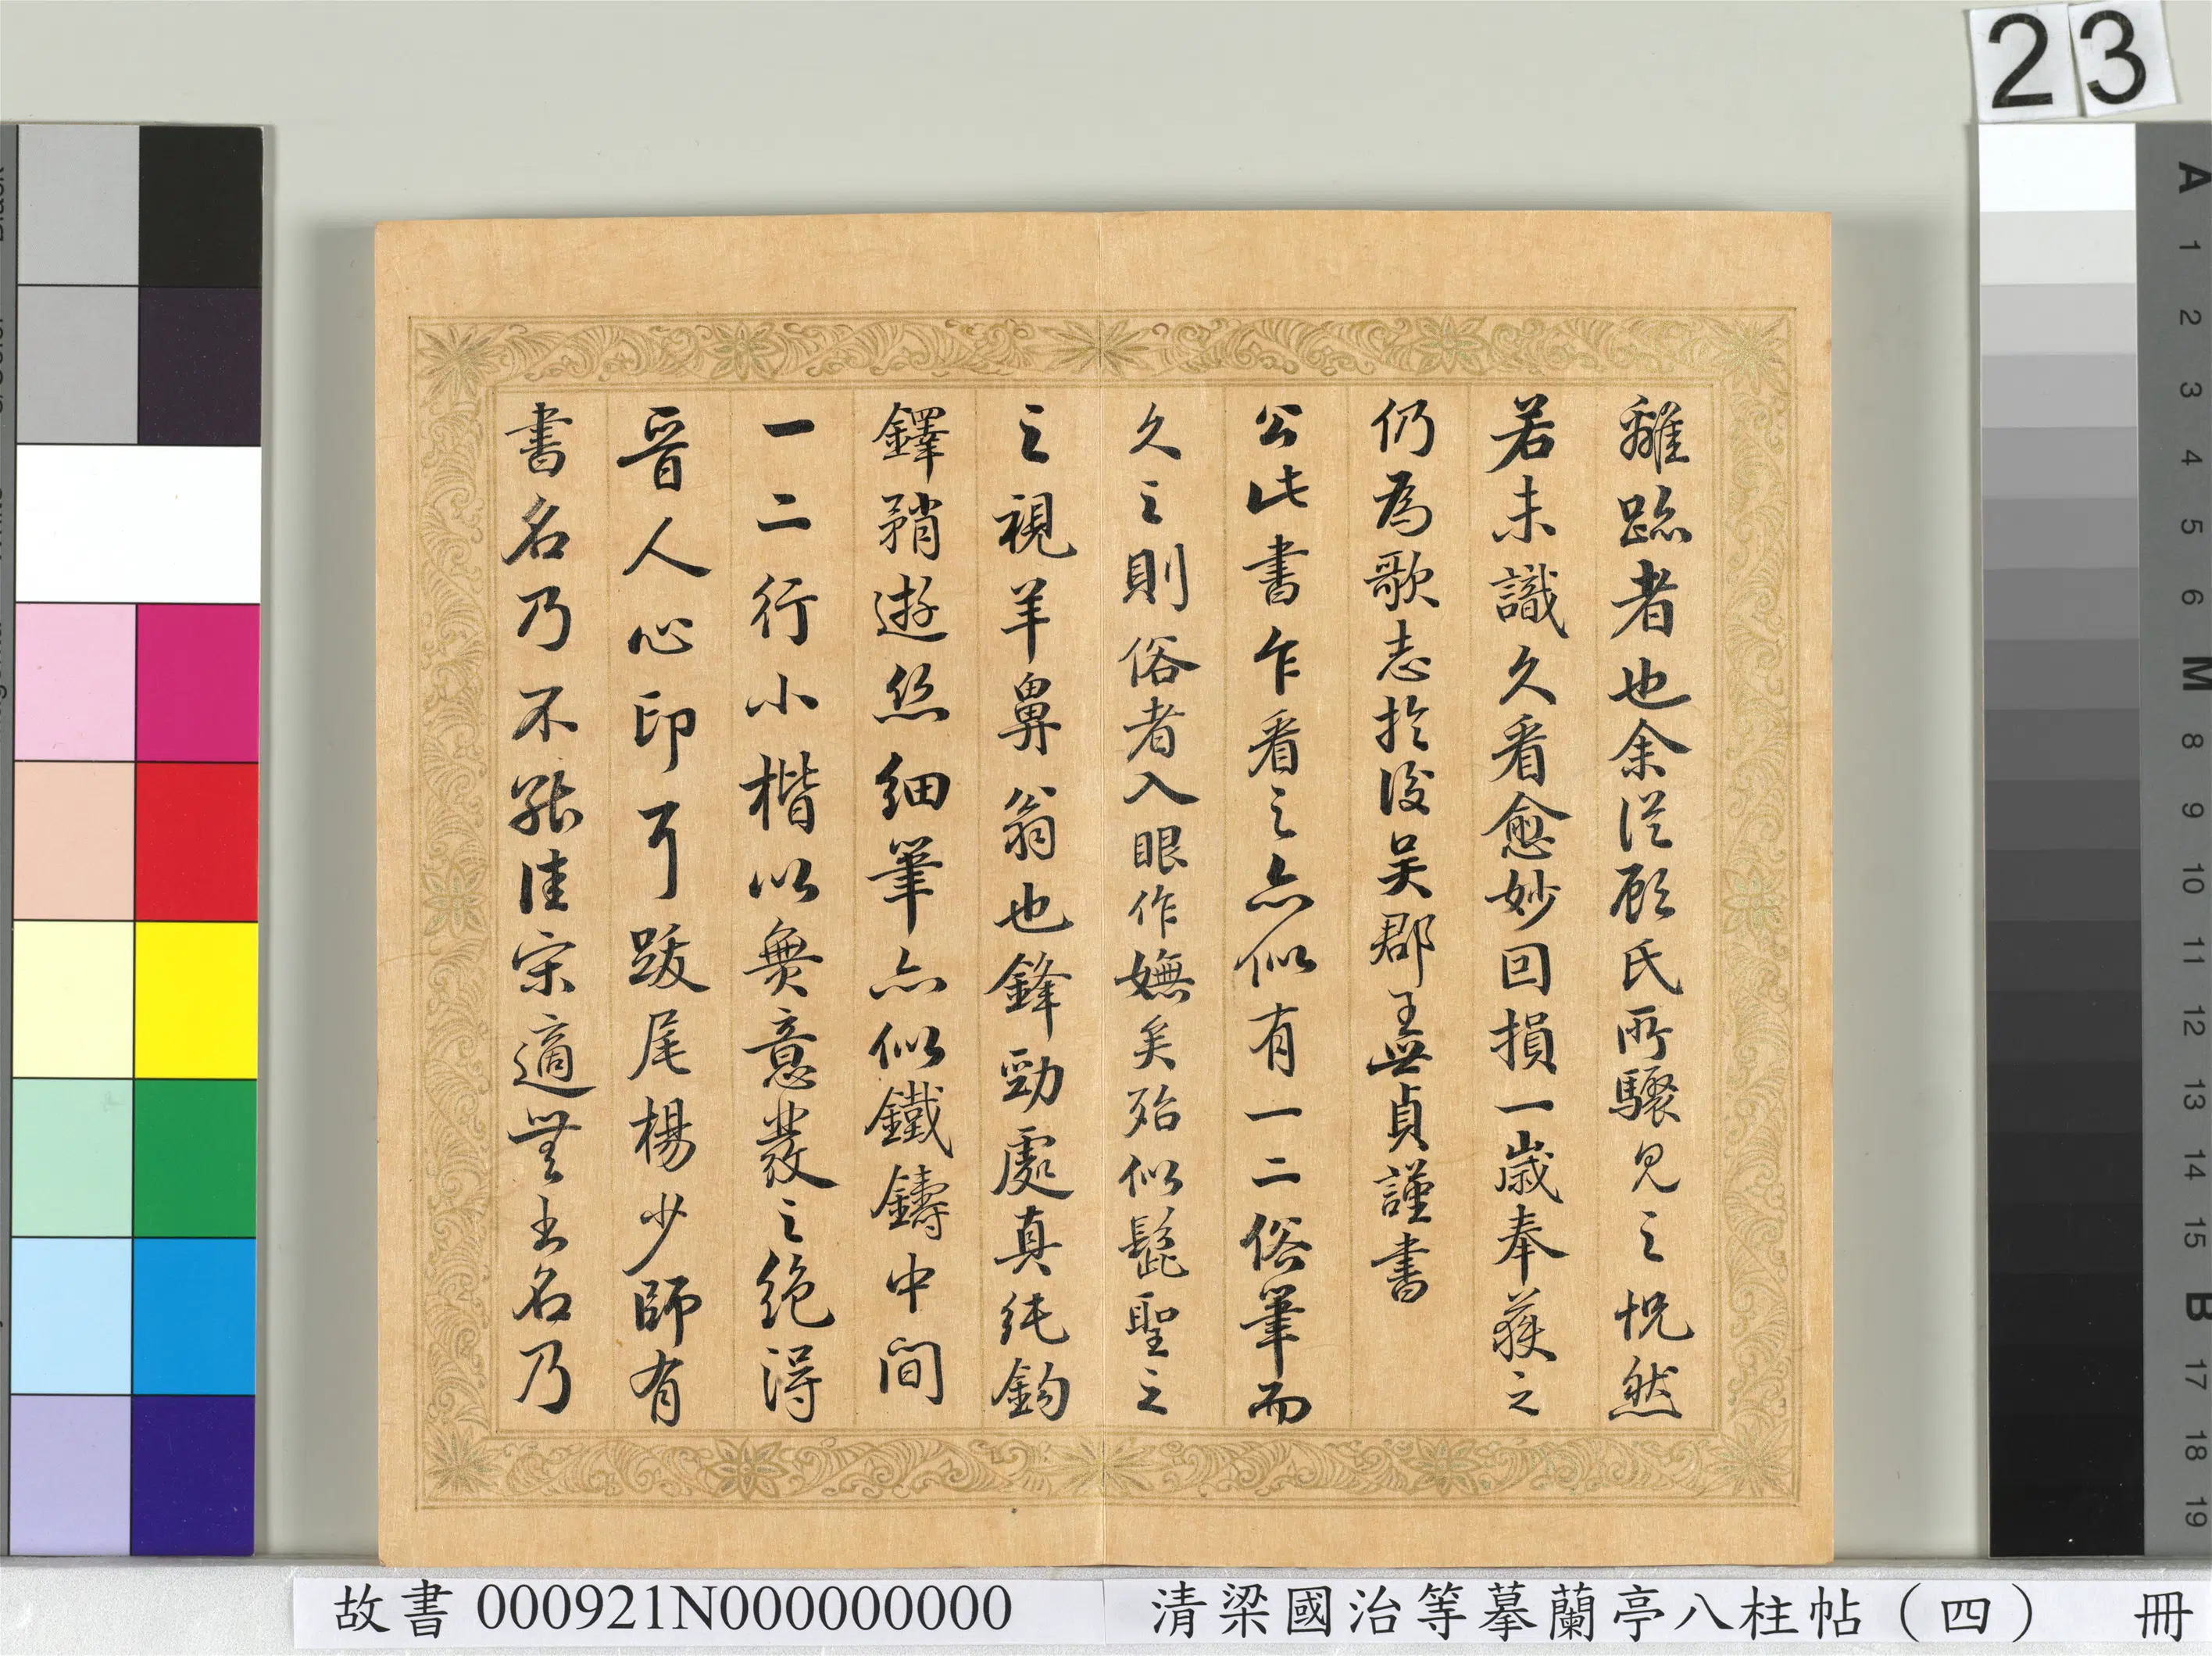 離跡者也余從顧氏所驟見之怳然
若未識久看愈妙回損一歲奉獲之
仍為歌志於後吳郡王無貞謹書
公此書乍看之亦似有一二俗筆而
久之則俗者入眼作嫵矣殆似髭聖之
之視羊鼻翁也鋒勁處真純鉤
鐸矟遊絲細筆亦似鐵鑄中間
一二行小楷以無意發之絕得
晉人心印耳跋尾楊少師有
書名乃不能佳宋適無書名乃
23
故書 000921N000000000
清梁國治等摹蘭亭八柱帖（四） 冊
A
1
2
3
4
5
6
M
8
9
10
11
12
13
14
15
B
17
18
19